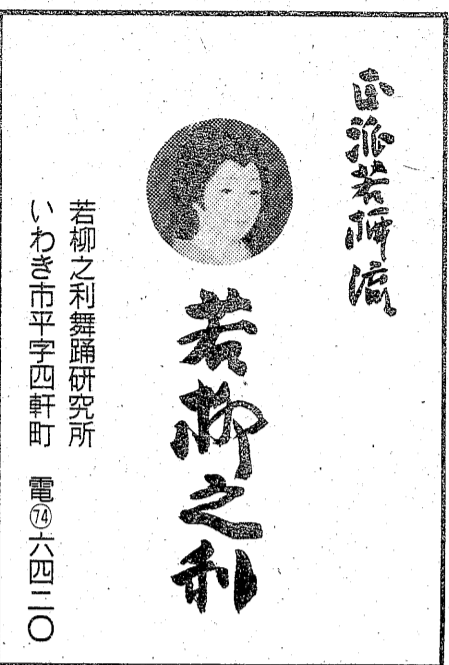 正派若柳流
若柳之利
若柳之利舞踊研究所
いわき市平字四軒町　電㉔六四二〇